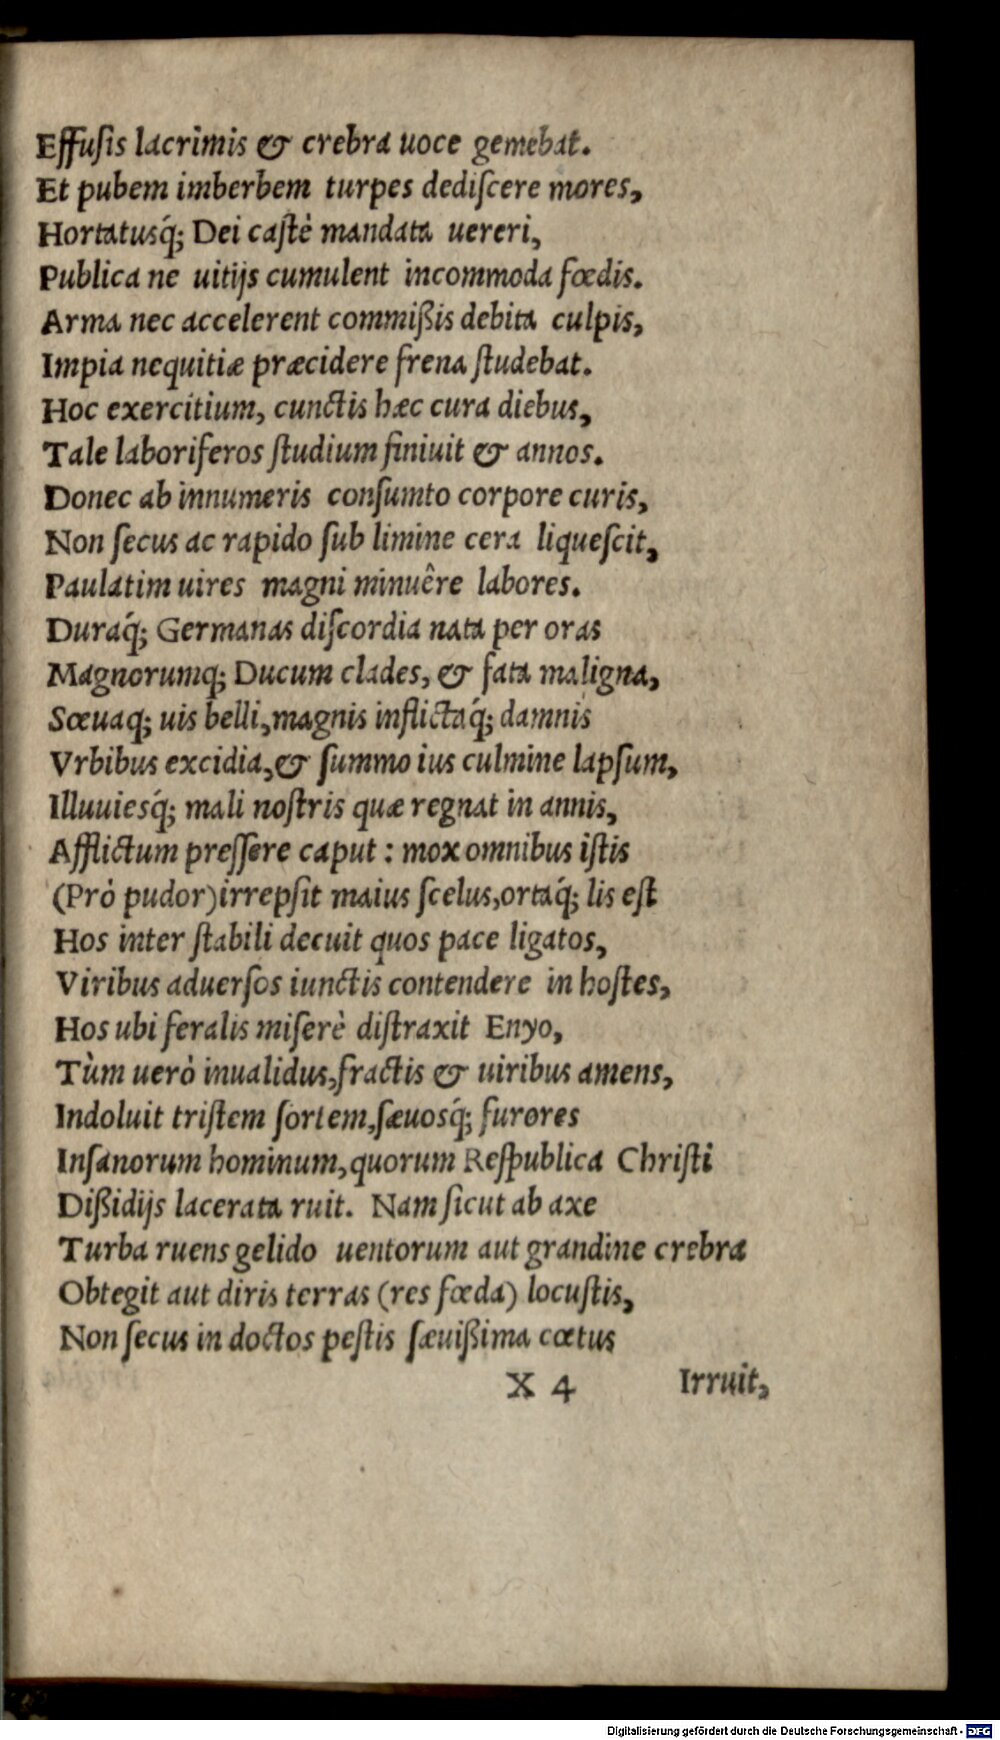 Effuſis lacrimis & crebra uoce gemebat.
Et pubem imberbem turpes dediſcere mores,
Hortatusq́; Dei caſtè mandata uereri,
Publica ne uitijs cumulent incommoda fœdis.
Arma nec accelerent commißis debita culpis,
Impia nequitiæ præcidere frena ſtudebat.
Hoc exercitium, cunctis hæc cura diebus,
Tale laboriferos ſtudium finiuit & annos.
Donec ab innumeris conſumto corpore curis,
Non ſecus ac rapido ſub limine cera liqueſcit,
Paulatim uires magni minuêre labores.
Duraq́; Germanas diſcordia nata per oras
Magnorumq; Ducum clades, & fata maligna,
Sœuaq; uis belli, magnis inflictaq́; damnis
Vrbibus excidia, & ſummo ius culmine lapſum,
Illuuiesq́; mali noſtris quæ regnat in annis,
Afflictum preſſere caput : mox omnibus iſtis
(Prò pudor) irrepſit maius ſcelus, ortaq́; lis eſt
Hos inter ſtabili decuit quos pace ligatos,
Viribus aduerſos iunctis contendere in hoſtes,
Hos ubi feralis miſerè diſtraxit Enyo,
Tùm uerò inualidus, fractis & uiribus amens,
Indoluit triſtem ſortem, ſæuosq́; furores
Inſanorum hominum, quorum Reſpublica Chriſti
Dißidijs lacerata ruit. Nam ſicut ab axe
Turba ruens gelido uentorum aut grandine crebra
Obtegit aut diris terras (res fœda) locuſtis,
Non ſecus in doctos peſtis ſæuißima cœtus
X 4 Irruit,
Digitalisierung gefördert durch die Deutsche Forschungsgemeinschaft - DFG